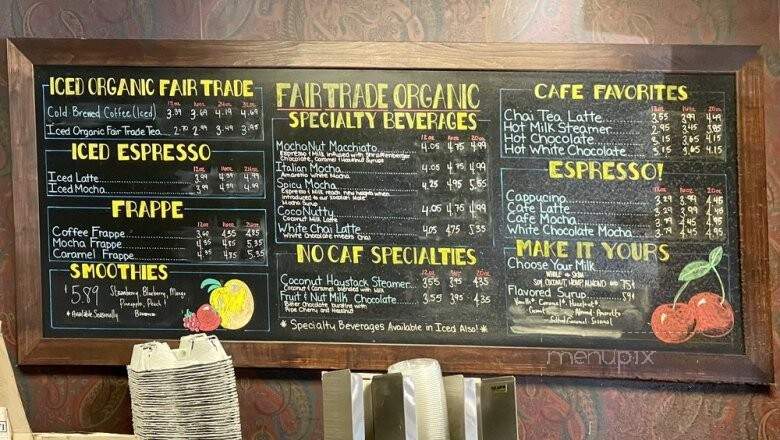 ICED ORGANIC FAIR TRADE
Cold Brewed Coffee (Iced) 3.39 3.69 4.19 4.69
Iced Organic Fair Trade Tea 2.70 2.99 3.49 3.95
ICED ESPRESSO
Iced Latte
Iced Mocha
FRAPPE
12oz 16oz 20oz
Coffee Frappe 4.35
Mocha Frappe 4.35 5.35
Caramel Frappe 4.35 5.35
SMOOTHIES
$5.89 Strawberry, Blueberry, Mango
Pineapple, Peach &
*Available Seasonally Banana
FAIR TRADE ORGANIC
SPECIALTY BEVERAGES
12oz 16oz 20oz
MochaNut Macchiato 4.05 4.75 4.99
Espresso & Milk infused with
Chocolate, Caramel & Hazelnut Syrups
Italian Mocha 4.05 4.75 4.99
Amaretto White Mocha
Spicy Mocha 4.25 4.95 5.55
Espresso & Milk
introduced to our
Mocha Syrup
CocoNutty 4.05 4.75 4.99
Coconut Milk Latte
White Chai Latte 4.05 4.75 5.35
White Chocolate meets Chai
NO CAF SPECIALTIES
12oz 16oz 20oz
Coconut Haystack Steamer 3.55 3.95 4.35
Coconut & Caramel blended with Milk
Fruit & Nut Milk Chocolate 3.55 3.95 4.35
Bitter Chocolate bursting with
Ripe Cherry and Hazelnut
* Specialty Beverages Available in Iced Also! *
CAFE FAVORITES
12oz 16oz 20oz
Chai Tea Latte 3.55 3.99 4.49
Hot Milk Steamer 2.95 3.45 3.95
Hot Chocolate 3.15 3.65 4.15
Hot White Chocolate 3.15 3.65 4.15
ESPRESSO!
12oz 16oz 20oz
Cappucino 3.29 3.99 4.45
Cafe Latte 3.29 3.99 4.45
Cafe Mocha 3.79 4.45 4.95
White Chocolate Mocha 3.79 4.45 4.95
MAKE IT YOURS
Choose Your Milk
WHOLE or SKIM
SOY, COCONUT, HEMP, ALMOND 75¢
Flavored Syrup 89¢
Vanilla* Caramel* Hazelnut*
Coconut Almond Amaretto
Salted Caramel Seasonal
menupix